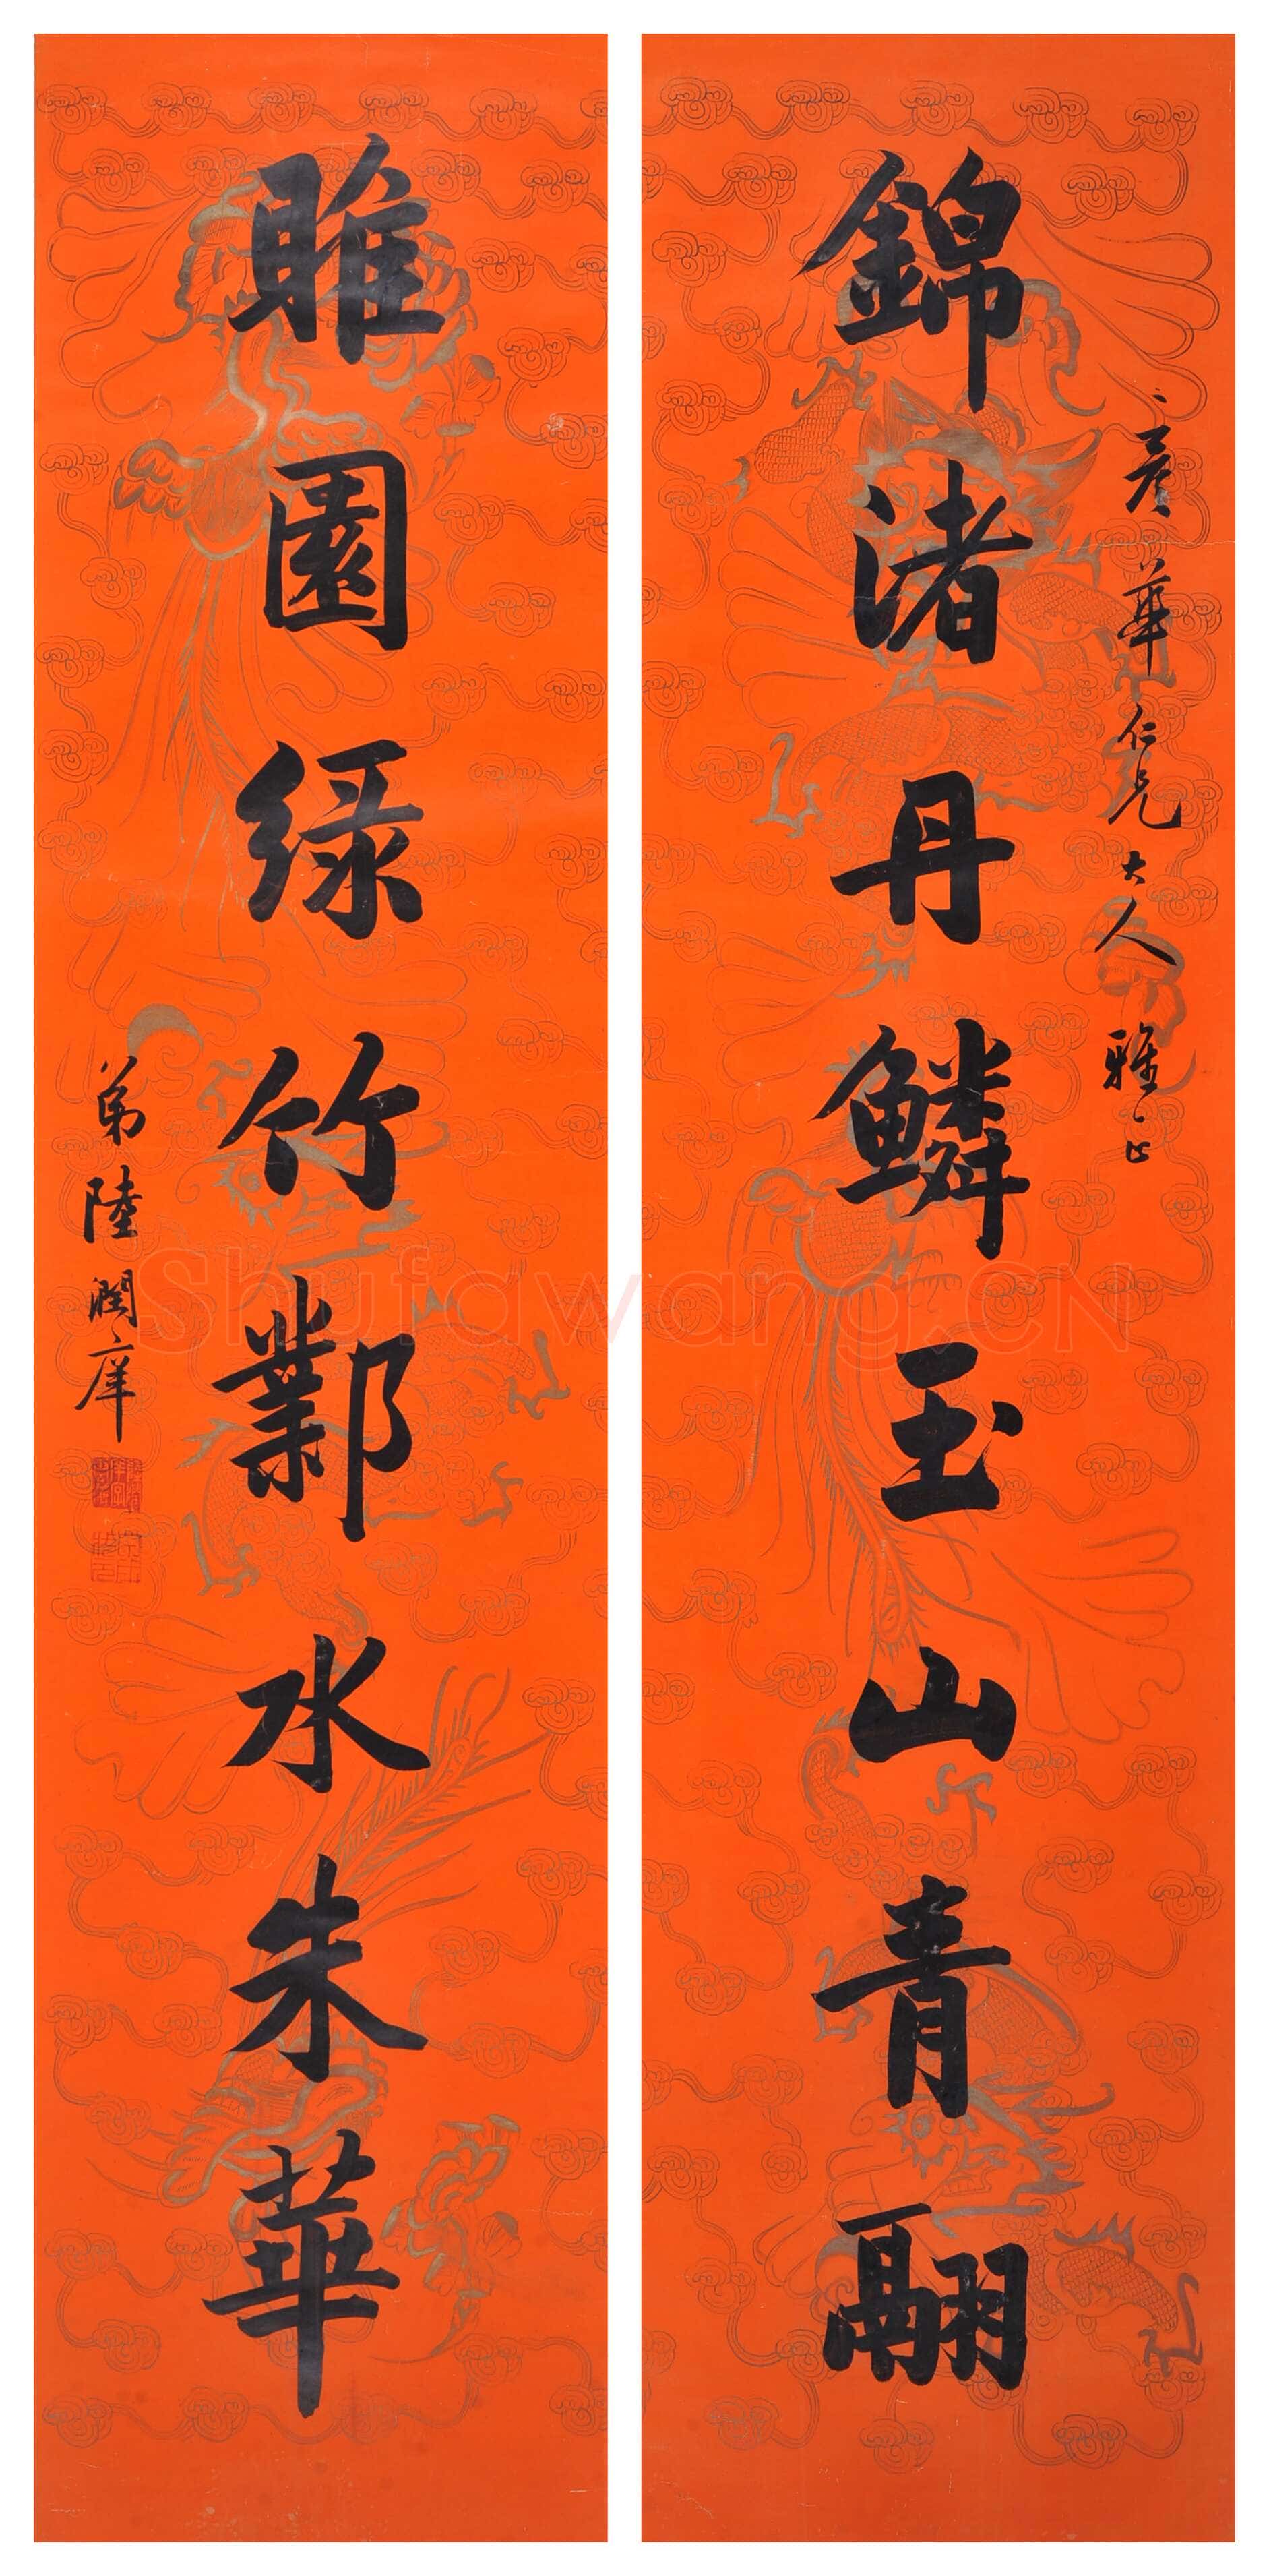 錦渚丹鱗玉山青翮
彥華仁兄大人雅正
睢園綠竹鄴水朱華
弟陸潤庠
Shufawang.CN